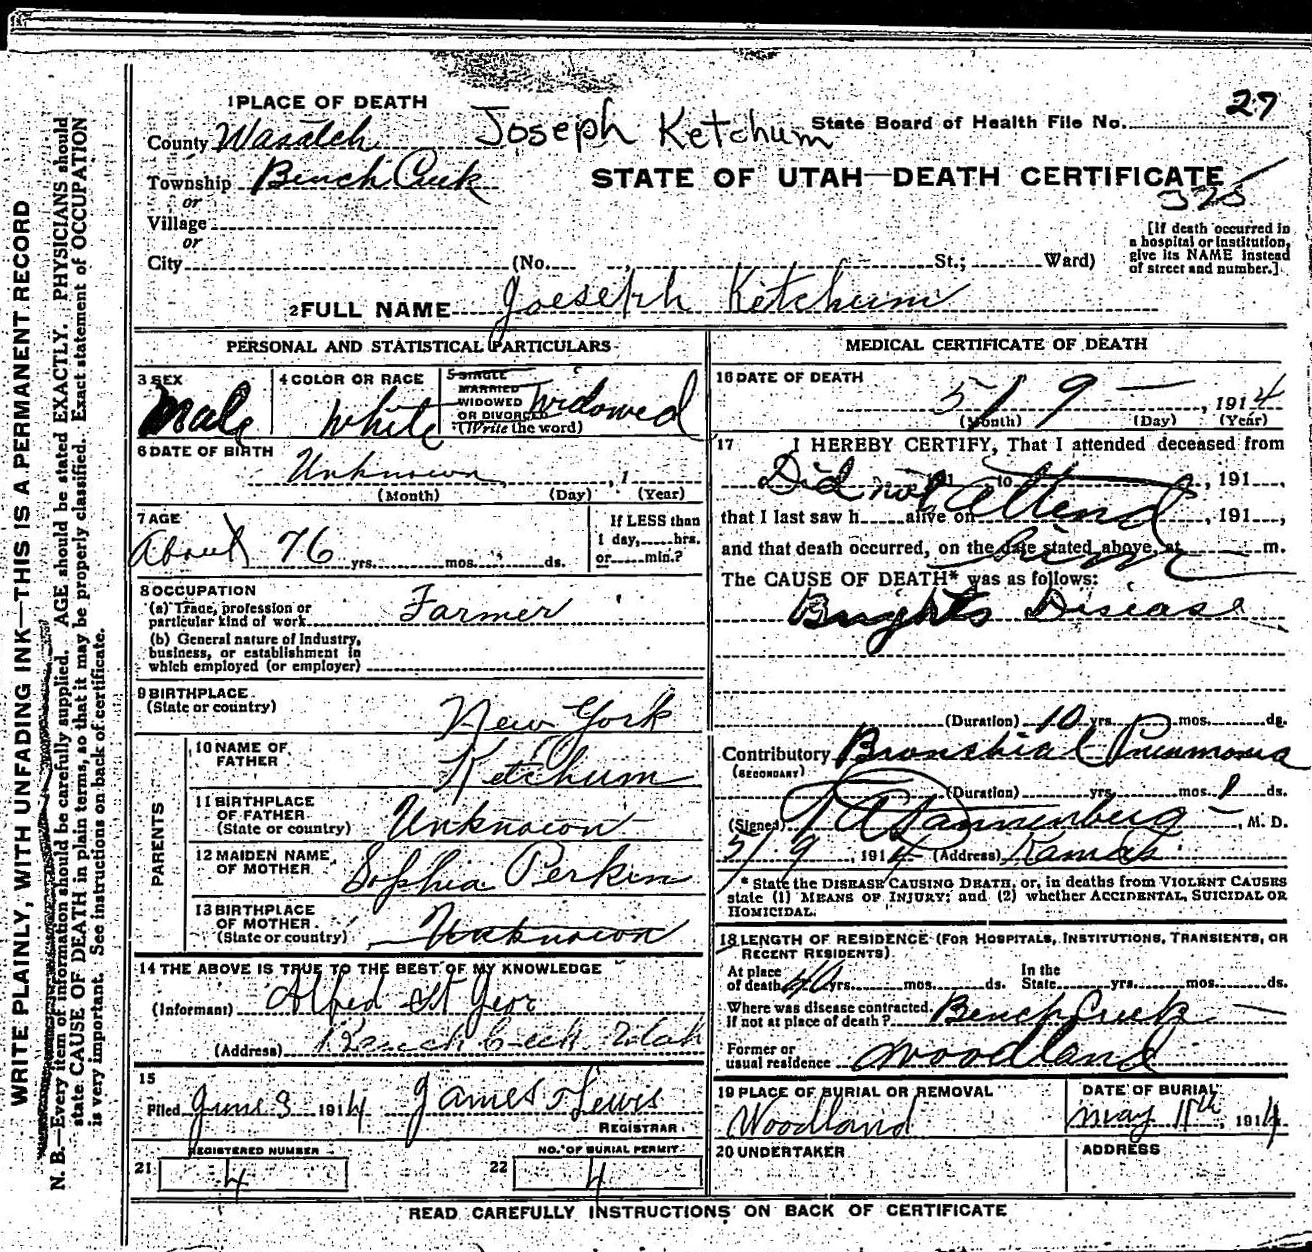 27
1 PLACE OF DEATH
Joseph Ketchum
State Board of Health File No.
County Wasatch
Township Bench Creek
STATE OF UTAH—DEATH CERTIFICATE
or
Village
or
[If death occurred in
a hospital or institution,
give its NAME instead
of street and number.]
City (No. , St.; Ward)
2 FULL NAME Joeseph Ketchum
PERSONAL AND STATISTICAL PARTICULARS
3 SEX
Male
4 COLOR OR RACE
White
5 SINGLE
MARRIED
WIDOWED
OR DIVORCED
(Write the word)
Widowed
6 DATE OF BIRTH
Unknown , 1
(Month) (Day) (Year)
7 AGE
About 76 yrs. mos. ds.
If LESS than
1 day, hrs.
or min.?
8 OCCUPATION
(a) Trade, profession or
particular kind of work
Farmer
(b) General nature of Industry,
business, or establishment in
which employed (or employer)
9 BIRTHPLACE
(State or country)
New York
PARENTS
10 NAME OF
FATHER
Ketchum
11 BIRTHPLACE
OF FATHER
(State or country)
Unknown
12 MAIDEN NAME
OF MOTHER
Sophia Perkin
13 BIRTHPLACE
OF MOTHER
(State or country)
Unknown
14 THE ABOVE IS TRUE TO THE BEST OF MY KNOWLEDGE
(Informant) Alfred St Jeor
(Address) Bench Creek Utah
15
Filed June 3 1914 James Lewis
REGISTRAR
REGISTERED NUMBER
21 4
NO. OF BURIAL PERMIT
22 4
MEDICAL CERTIFICATE OF DEATH
16 DATE OF DEATH
5/ 9 — , 1914
(Month) (Day) (Year)
17 I HEREBY CERTIFY, That I attended deceased from
191 , to , 191 ,
Did not attend
that I last saw h alive on , 191 ,
and that death occurred, on the date stated above, at m.
him
The CAUSE OF DEATH* was as follows:
Brights Disease
(Duration) 10 yrs. mos. ds.
Contributory Bronchial Pneumonia
(SECONDARY)
(Duration) yrs. mos. ds.
(Signed) Dannenberg , M. D.
5/9 , 1914 (Address) Kamas
* State the DISEASE CAUSING DEATH, or, in deaths from VIOLENT CAUSES
state (1) MEANS OF INJURY; and (2) whether ACCIDENTAL, SUICIDAL OR
HOMICIDAL.
18 LENGTH OF RESIDENCE (FOR HOSPITALS, INSTITUTIONS, TRANSIENTS, OR
RECENT RESIDENTS).
At place
of death 40 yrs. mos. ds.
In the
State yrs. mos. ds.
Where was disease contracted
if not at place of death? Bench Creek
Former or
usual residence Woodland
19 PLACE OF BURIAL OR REMOVAL
Woodland
DATE OF BURIAL
May 11th, 1914
20 UNDERTAKER
ADDRESS
READ CAREFULLY INSTRUCTIONS ON BACK OF CERTIFICATE
WRITE PLAINLY, WITH UNFADING INK—THIS IS A PERMANENT RECORD
N. B.—Every item of information should be carefully supplied. AGE should be stated EXACTLY. PHYSICIANS should
state CAUSE OF DEATH in plain terms, so that it may be properly classified. Exact statement of OCCUPATION
is very important. See instructions on back of certificate.